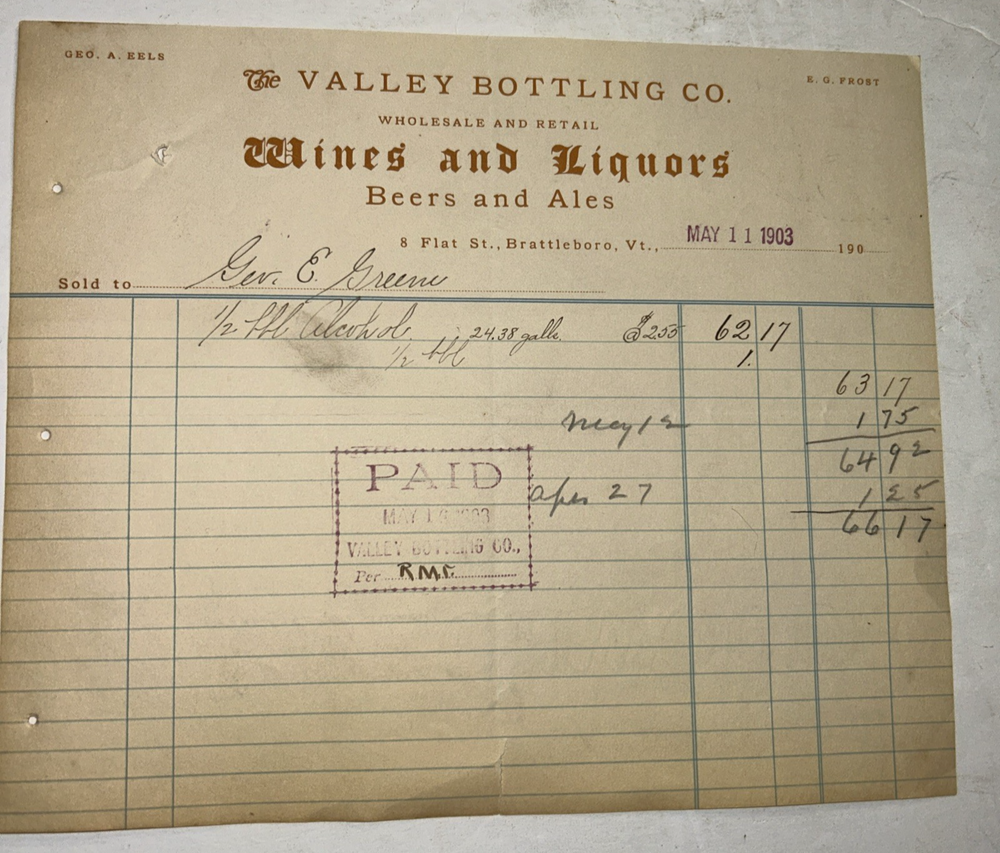 GEO. A. EELS
E. G. FROST
The VALLEY BOTTLING CO.
WHOLESALE AND RETAIL
Wines and Liquors
Beers and Ales
8 Flat St., Brattleboro, Vt., MAY 11 1903 190
Sold to Geo. E. Greene
1/2 bbl Alcohol 24.38 galls. $2.55 62 17
1/2 bbl 1.
63 17
May 12 1 75
64 92
Apr 27 1 25
66 17
PAID
MAY 1 1903
VALLEY BOTTLING CO.,
Per